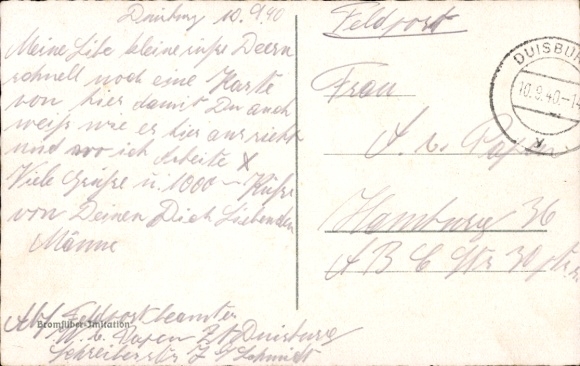 Duisburg 10.9.40
Meine Libe kleine süße Deern
schnell noch eine Karte
von hier damit Du auch
weißs wie es hier aussieht
und wo ich Arbeite X
Viele Grüße u. 1000 – Küße
von Deinen Dich Liebenden
Männe
Abs. Feldpostbeamter
Bromsilber-Imitation
W. v. Papen Duisburg
Schreiberstr. 7 Schmidt
Feldpost
DUISBURG
10.9.40.-1
K
Frau
A. v. Papen
Hamburg 36
A B C Str 30